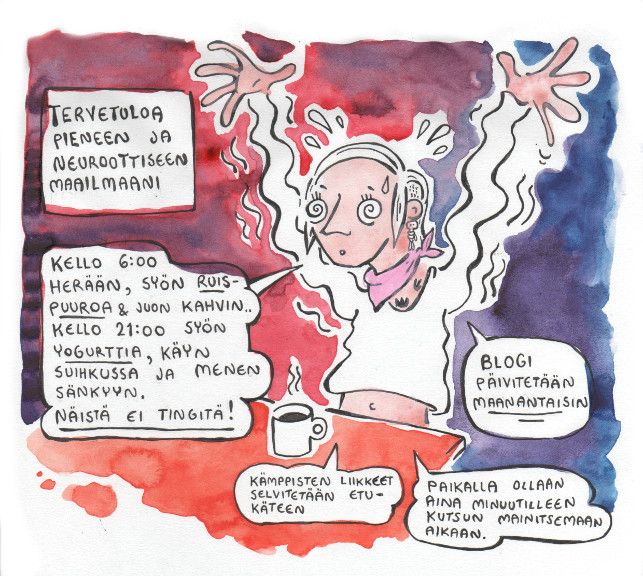 TERVETULOA
PIENEEN JA
NEUROOTTISEEN
MAAILMAANI
KELLO 6:00
HERÄÄN, SYÖN RUIS-
PUUROA & JUON KAHVIN..
KELLO 21:00 SYÖN
YOGURTTIA, KÄYN
SUIHKUSSA JA MENEN
SÄNKYYN.
NÄISTÄ EI TINGITÄ!
BLOGI
PÄIVITETÄÄN
MAANANTAISIN
KÄMPPISTEN LIIKKEET
SELVITETÄÄN ETU-
KÄTEEN
PAIKALLA OLLAAN
AINA MINUUTILLEEN
KUTSUN MAINITSEMAAN
AIKAAN.